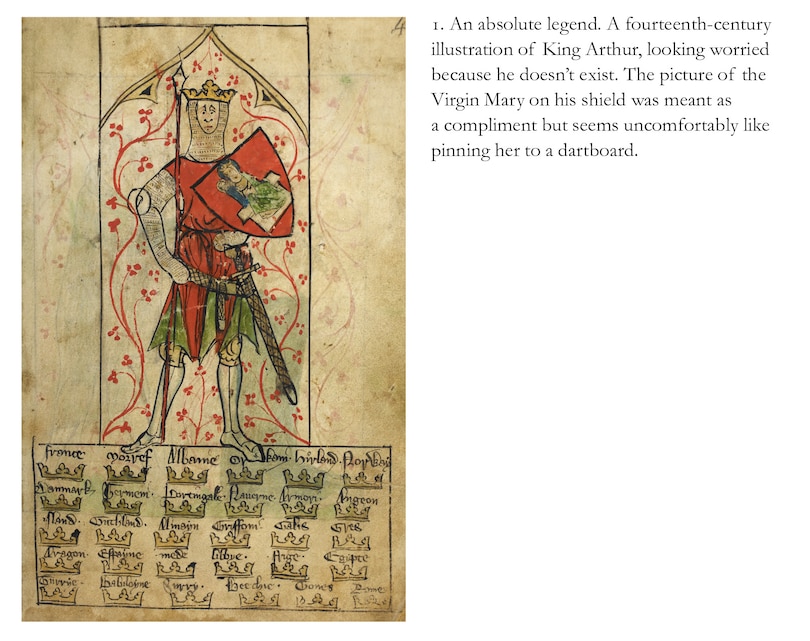 4
france Norref Albanie Orkani hirland Norway
Danmark Germem Portingale Nauerne Armori Angeon
Island Guthland Almain Griffom Galis Gres
Aragon Espaine mede libbye Arge Egipte
Surrye Babiloyne Beechie Gones Rome
1. An absolute legend. A fourteenth-century
illustration of King Arthur, looking worried
because he doesn’t exist. The picture of the
Virgin Mary on his shield was meant as
a compliment but seems uncomfortably like
pinning her to a dartboard.